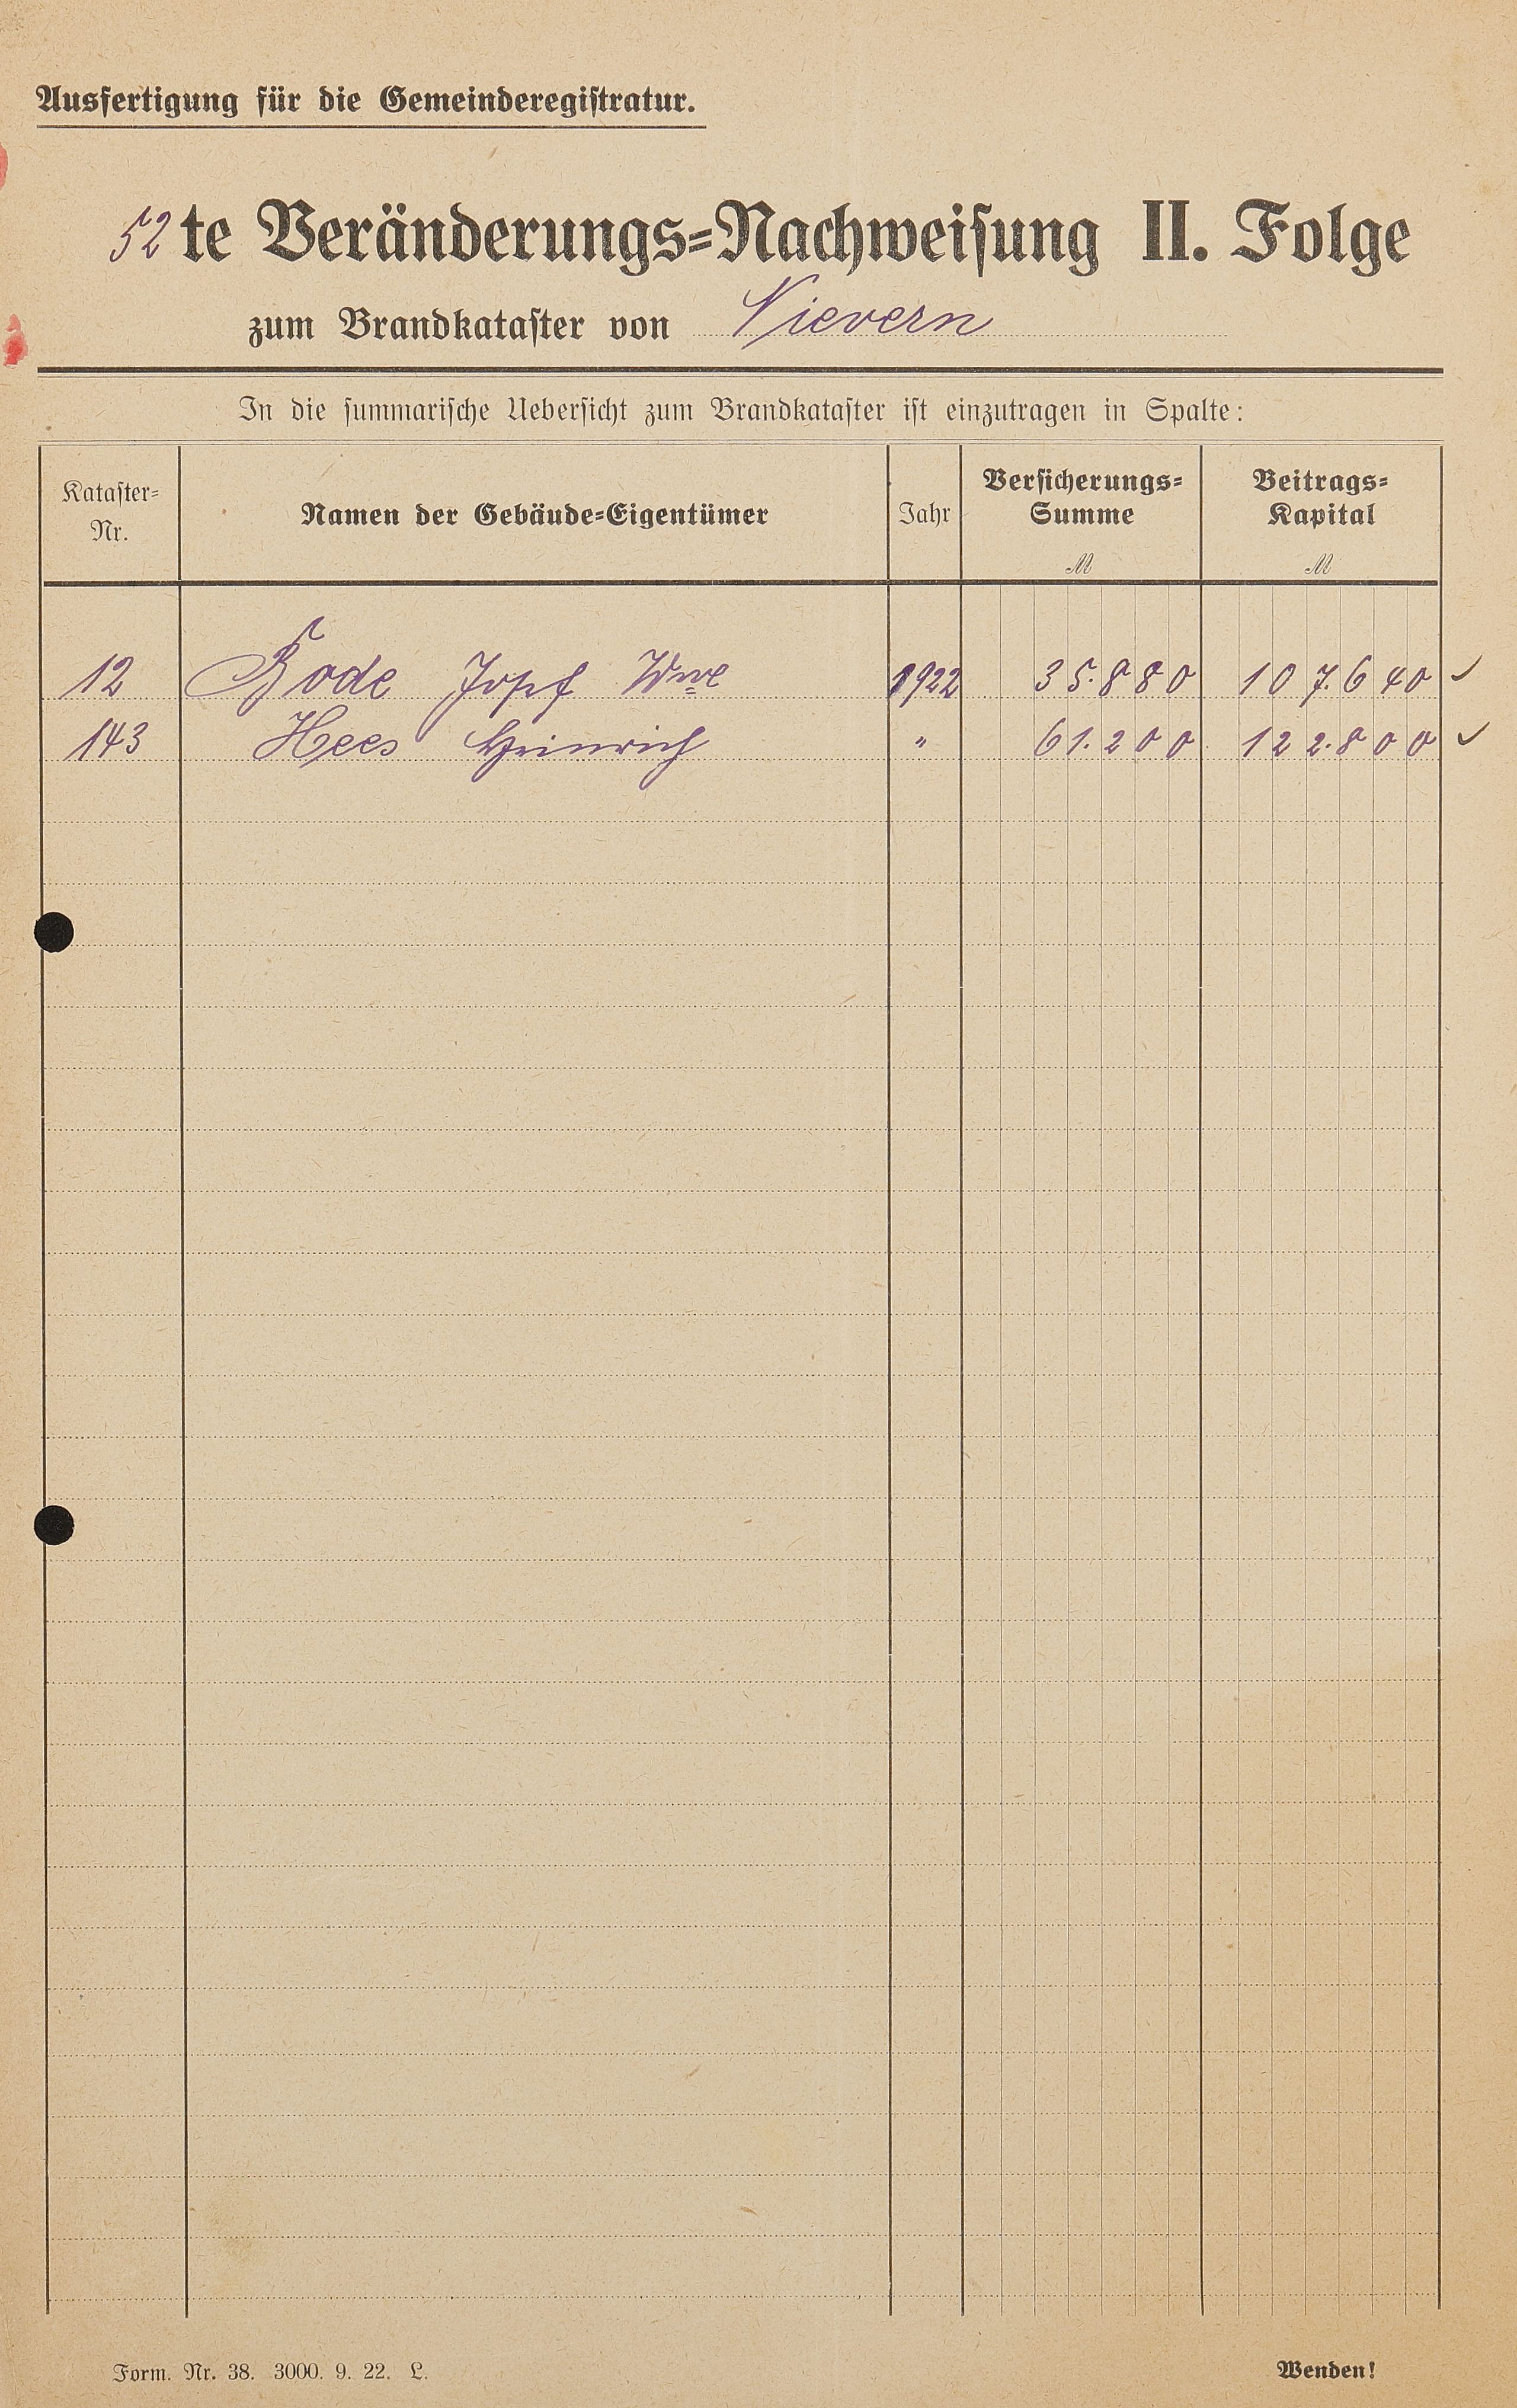 Ausfertigung für die Gemeinderegistratur.
52te Veränderungs-Nachweisung II. Folge
zum Brandkataster von Nievern
In die summarische Uebersicht zum Brandkataster ist einzutragen in Spalte:
Kataster-Nr. Namen der Gebäude-Eigentümer Jahr Versicherungs-Summe M Beitrags-Kapital M
12 Bode Josef Wwe 1922 35.880 107.640 ✓
143 Hees Heinrich " 61.200 122.800 ✓
Form. Nr. 38. 3000. 9. 22. L. Wenden!